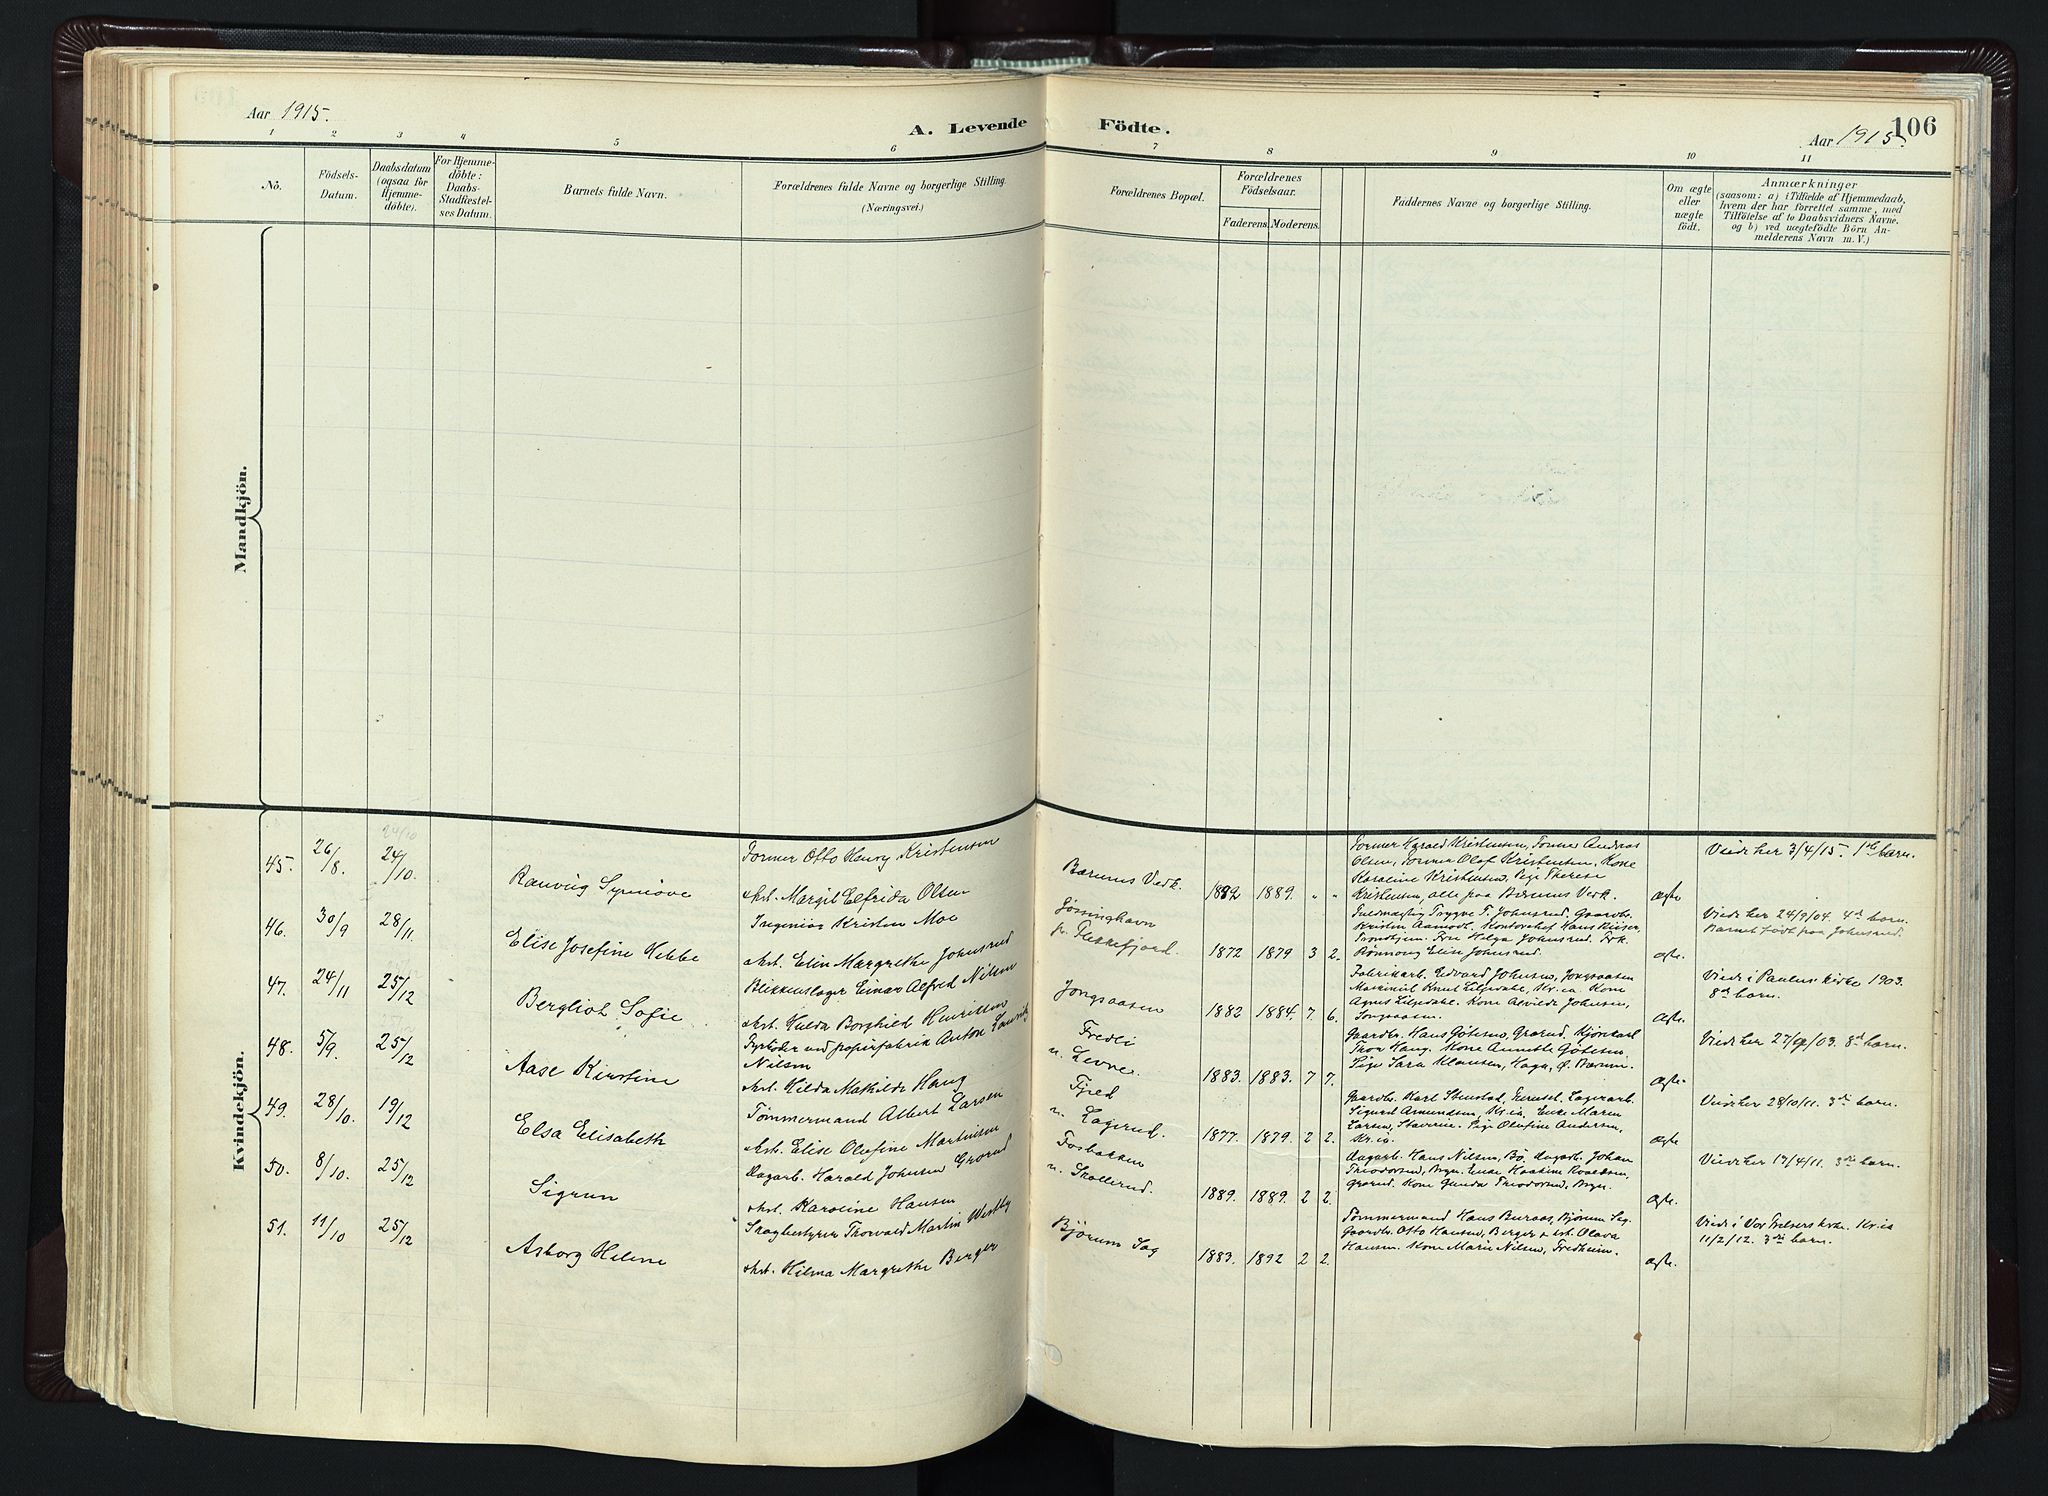 Aar 1915.
A. Levende Födte.
106
Aar 1915.
1 2 3 4 5 6 7 8 9 10 11
No.
Födsels-
Datum.
Daabsdatum
(ogsaa for
Hjemme-
döbte).
For Hjemme-
döbte:
Daabs-
Stadfæstel-
ses Datum.
Barnets fulde Navn.
Forældrenes fulde Navne og borgerlige Stilling.
(Næringsvei.)
Forældrenes Bopæl.
Forældrenes
Födselsaar.
Faderens. Moderens.
Faddernes Navne og borgerlige Stilling.
Om ægte
eller
uægte
födt.
Anmærkninger
(saasom: a) i Tilfælde af Hjemmedaab,
hvem der har forrettet samme, med
Tilföielse af to Daabsvidners Navne.
og b) ved uægtefödte Börn An-
melderens Navn m. V.)
Mandkjön.
Kvindekjön.
24/10
45. 26/8. 24/10.
Ranvig Synnöve
Former Otto Henry Kristensen
Hst. Margit Elfrida Olsen
Bærums Verk.
1892 1889. " "
Former Harald Kristensen, Former Andreas
Olsen, Former Olaf Kristensen, Kone
Karoline Kristensen, Pige Therese
Kristensen, alle paa Bærums Verk.
Ægte
Viedt her 3/4/15. 1ste barn.
46. 30/9 28/11.
Elise Josefine Hebbe
Ingeniør Kristen Moe
Hst. Elin Margrethe Johnsrud
Jøssinghavn
pr. Flekkefjord.
1872 1879 3 2.
Fuldmægtig Trygve T. Johnsrud, Gaardbr.
Kristen Aamodt. Kontorchef Hans Kiær,
Trondhjem. Frue Helga Johnsrud. Frk.
Rønnaug Elise Johnsrud.
Ægte.
Viedt her 24/9/04. 4de barn.
Barnet født paa Johnsrud.
47. 24/11 25/12
Bergliot Sofie
Blikkenslager Einar Alfred Nilsen
Hst. Hulda Borghild Henriksen
Jongsaasen
1882 1884. 7. 6.
Fabrikarb. Edvard Johnsen, Jongsaasen
Maskinist Knut Liljedahl, Kr.ia. Kone
Agnes Liljedahl. Kone Alvilde Johnsen,
Jongsaasen.
Ægte.
Viedt i Paulus kirke 1903.
8de barn.
48. 5/9. 25/12
Aase Kirstine
Fyrbøder ved papirfabrik Anton Lauritz
Nilsen
Hst. Hilda Mathilde Haug
Fredli
u. Levre.
1883. 1883. 7 7.
Gaardbr. Hans Götesen, Grorud, Kjörekarl
Thor Haug. Kone Annette Götesen.
Pige Sara Klausen, Haga, Ø. Bærum.
Ægte.
Viedt her 03. 8de barn.
49. 28/10. 19/12
Elsa Elisabeth
Tømmermand Albert Larsen
Hst. Elise Olufine Martinsen
Fjeld
u. Løgerud.
1877. 1879. 2 2.
Gaardbr. Karl Stenstad, Lagerarb.
Sigurd Amundsen, Kr.ia. Enke Maren
Larsen, Stavern. Pige Olufine Andersen,
Kr.ia.
Ægte
Viedt her 28/10/11. 3die barn.
50. 8/10. 25/12
Sigrun
Dagarb. Harald Johnsen Grorud
Hst. Karoline Hansen
Fosbakken
u. Skollerud.
1889. 1889. 2 2.
Dagarb. Hans Nilsen, Bö. Dagarb. Johan
Theodorsen, Bryn. Enke Haakine Roaldsen,
Grorud. Kone Gunda Theodorsen, Bryn.
Ægte.
Viedt her 17/4/11. 3die barn.
51. 11/10 25/12
Asborg Helene
Sagbestyrer Thorvald Martin Westby
Hst. Hilma Margrethe Berger
Bjørum Sag
1883. 1892 2 2.
Tømmermand Hans Buraas, Bjørum Sag.
Gaardbr. Otto Hansen, Berger & Hst. Olava
Hansen. Kone Marie Nilsen, Fredheim.
Ægte.
Viedt i Vor Frelsers kirke Kr.ia
11/2/12. 3die barn.